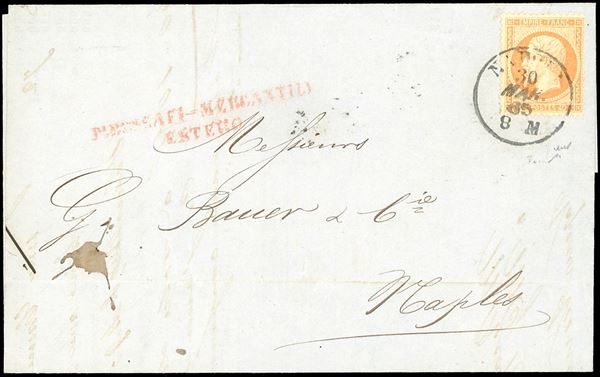 EMPIRE FRANC
30
MAR.
65
8 M
PIROSCAFI=MERCANTILI
ESTERO
Messieurs
G. Bauer & Cie
Naples